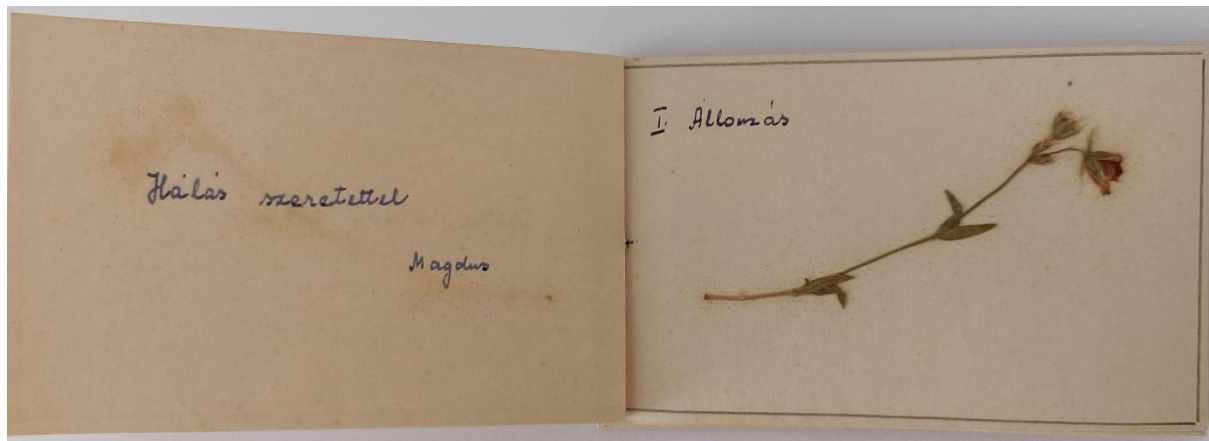 Hálás szeretettel
Magdus
I. Állomás